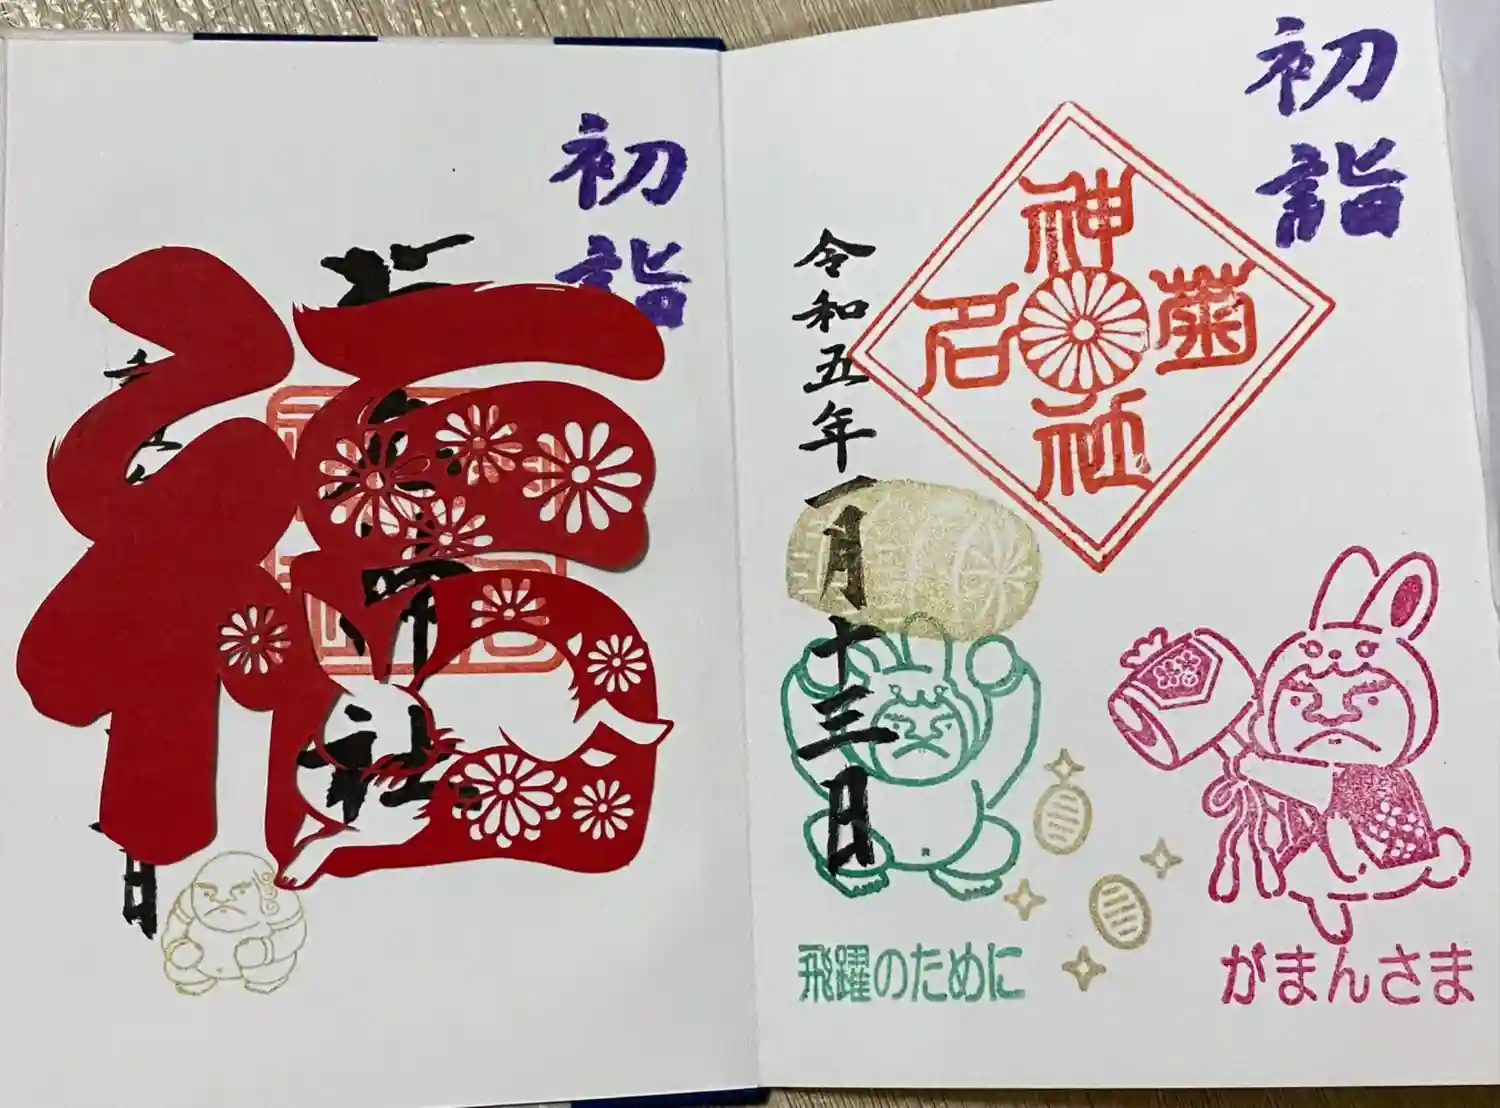 初詣
菊名
神社
令和五年一月十三日
がまんさま
飛躍のために
初詣
福
社
日